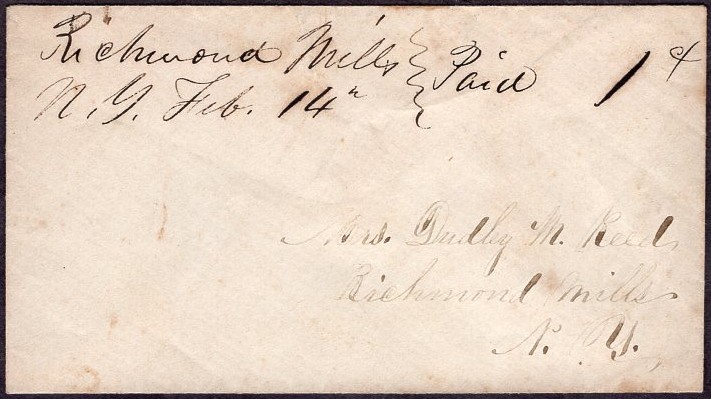 Richmond Mills } Paid 1 ¢
N. Y. Feb. 14th
Mrs. Dudley M. Reed,
Richmond Mills
N. Y.